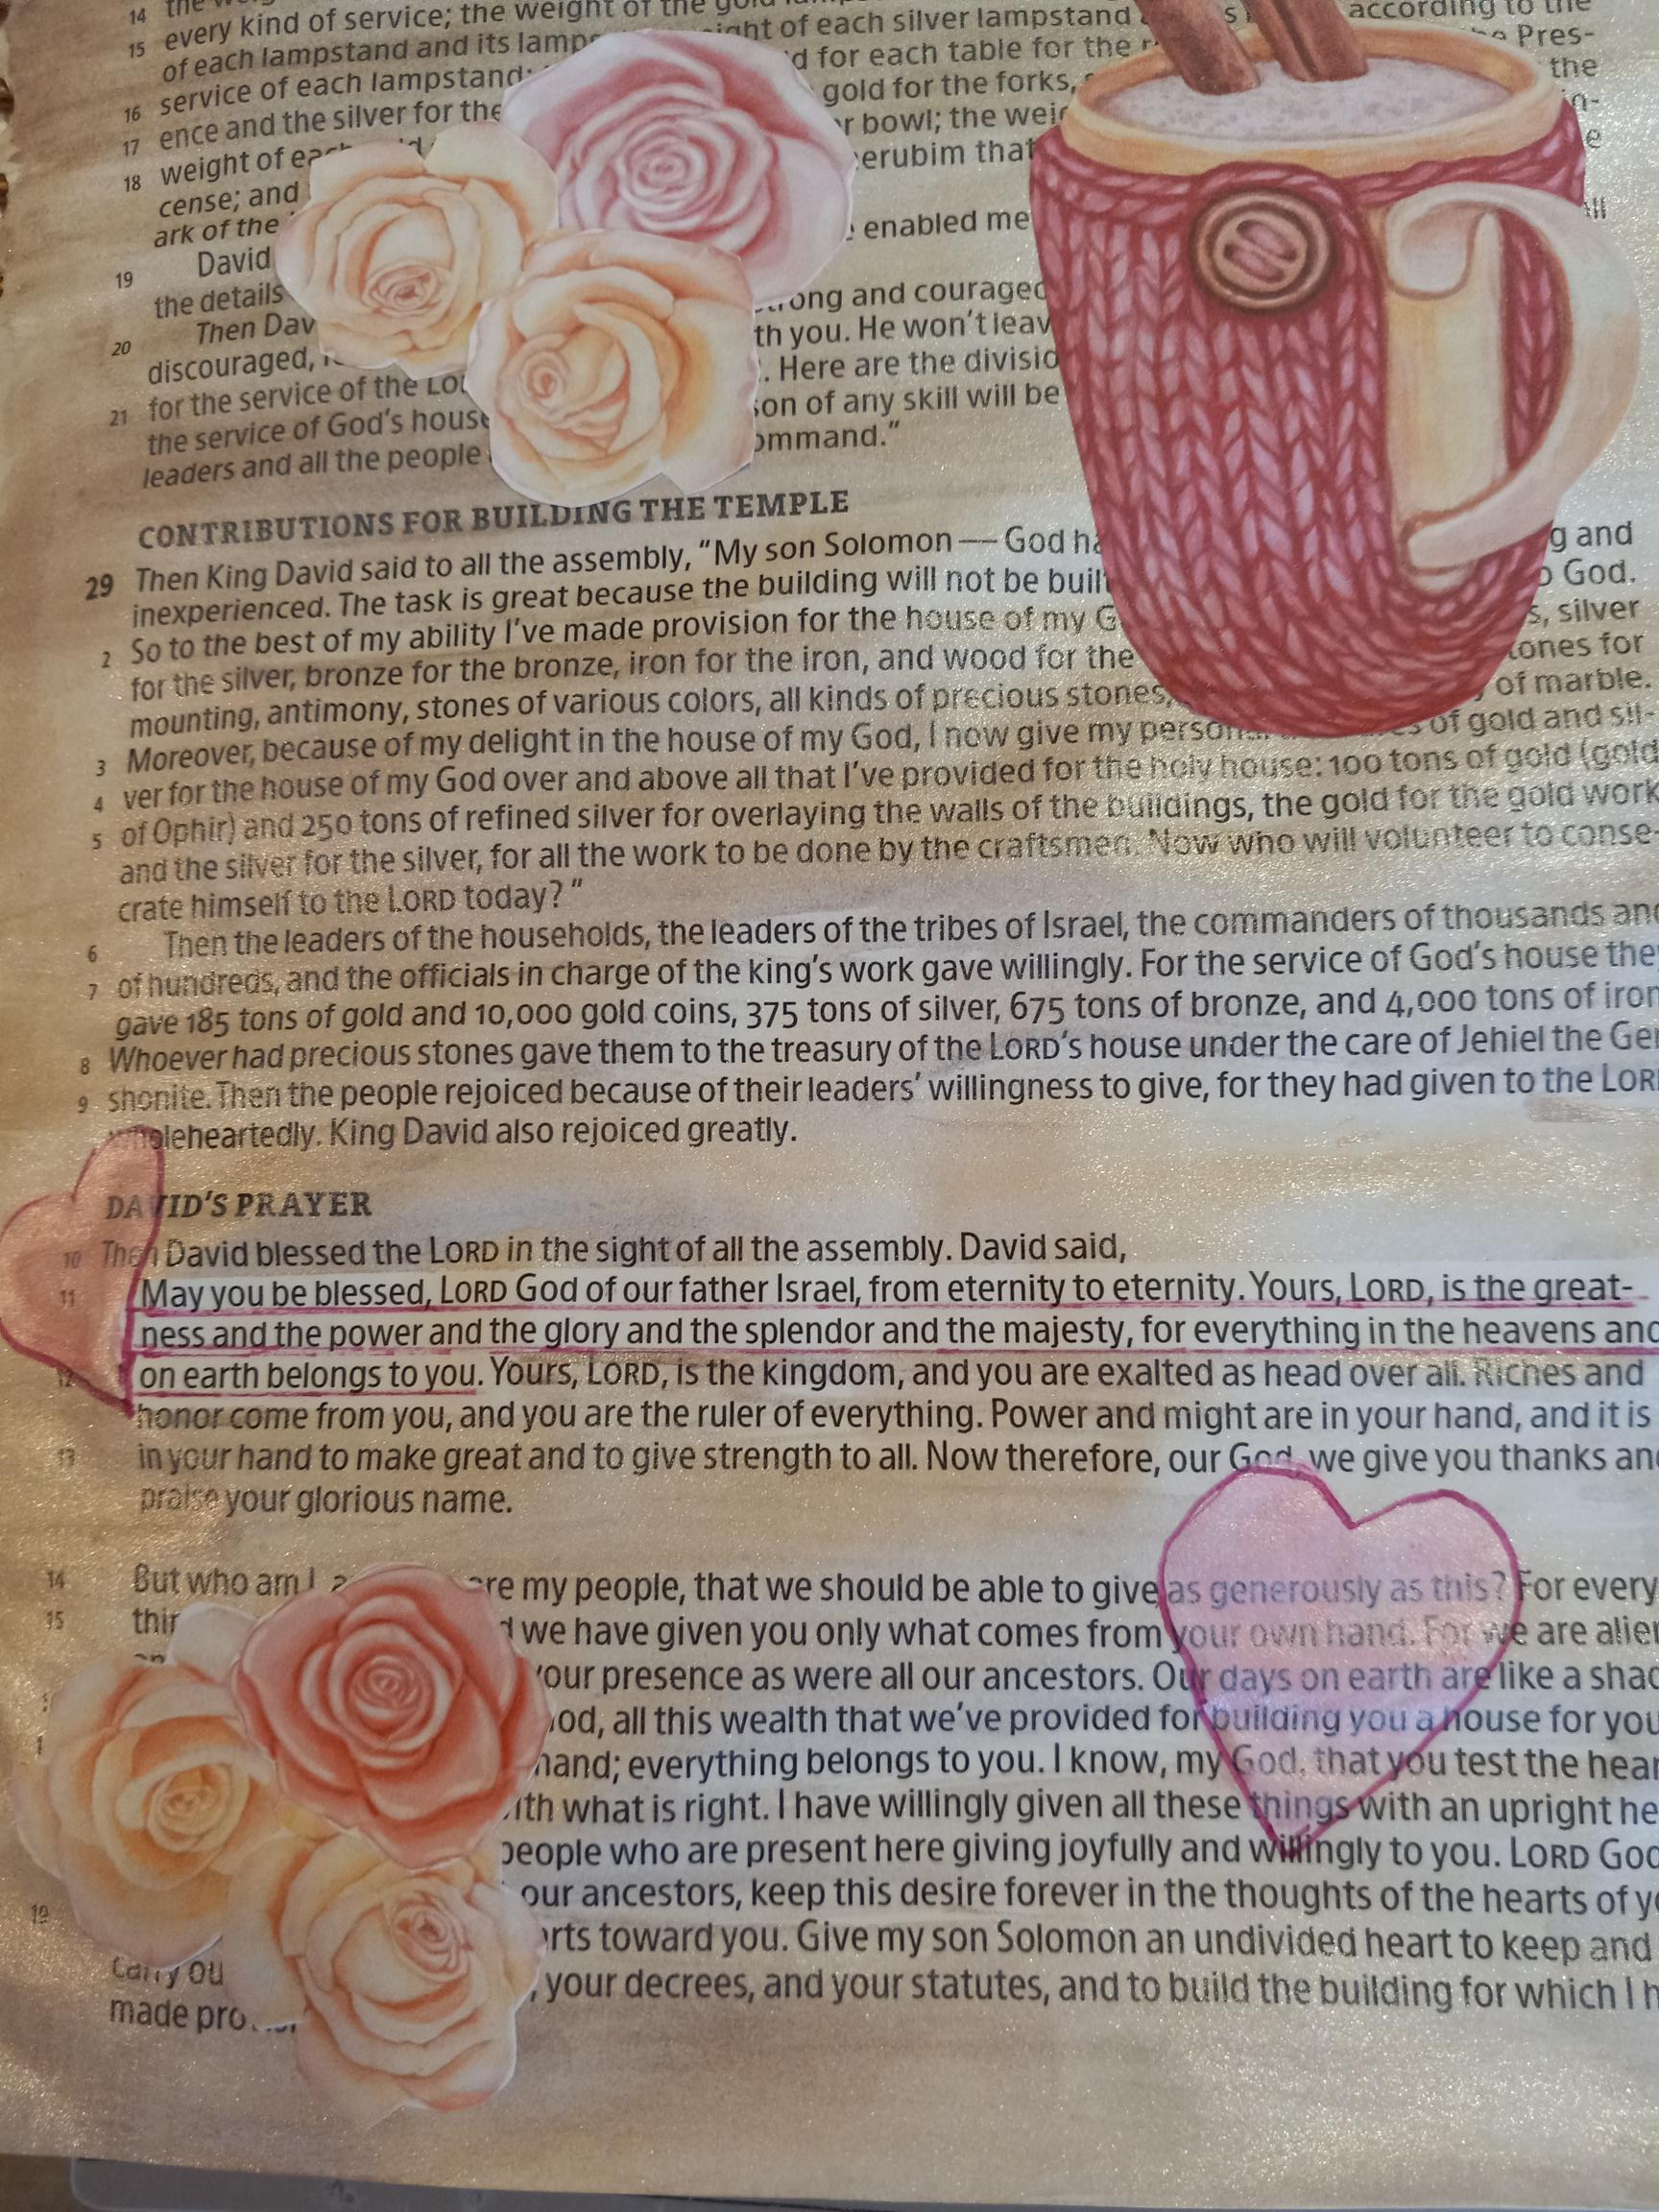 14
15 every kind of service; the weight of the
of each lampstand and its of each silver lampstand according to the
16 service of each lampstand; for each table for the Pres-
17 ence and the silver for the gold for the forks, the
18 weight of bowl; the
cense; and that
ark of the
19 David enabled me
the details
20 Then strong and
discouraged, you. He won't
for the service of the Here are the
21 the service of God's of any skill will be
leaders and all the people command."
CONTRIBUTIONS FOR BUILDING THE TEMPLE
29 Then King David said to all the assembly, "My son Solomon — God and
inexperienced. The task is great because the building will not be God.
2 So to the best of my ability I've made provision for the house of my silver
for the silver, bronze for the bronze, iron for the iron, and wood for the for
mounting, antimony, stones of various colors, all kinds of precious stones, of marble.
3 Moreover, because of my delight in the house of my God, I now give my of gold and sil-
4 ver for the house of my God over and above all that I've provided for the holy house: 100 tons of gold (gold
5 of Ophir) and 250 tons of refined silver for overlaying the walls of the buildings, the gold for the gold work
and the silver for the silver, for all the work to be done by the craftsmen. Now who will volunteer to conse-
crate himself to the LORD today?"
6 Then the leaders of the households, the leaders of the tribes of Israel, the commanders of thousands and
7 of hundreds, and the officials in charge of the king's work gave willingly. For the service of God's house they
gave 185 tons of gold and 10,000 gold coins, 375 tons of silver, 675 tons of bronze, and 4,000 tons of iron
8 Whoever had precious stones gave them to the treasury of the LORD's house under the care of Jehiel the Ger
9 shonite. Then the people rejoiced because of their leaders' willingness to give, for they had given to the LORD
wholeheartedly. King David also rejoiced greatly.
DAVID'S PRAYER
10 Then David blessed the LORD in the sight of all the assembly. David said,
11 May you be blessed, LORD God of our father Israel, from eternity to eternity. Yours, LORD, is the great-
ness and the power and the glory and the splendor and the majesty, for everything in the heavens and
12 on earth belongs to you. Yours, LORD, is the kingdom, and you are exalted as head over all. Riches and
honor come from you, and you are the ruler of everything. Power and might are in your hand, and it is
13 in your hand to make great and to give strength to all. Now therefore, our God, we give you thanks and
praise your glorious name.
14 But who am I, are my people, that we should be able to give as generously as this? For every
15 we have given you only what comes from your own hand. For we are
your presence as were all our ancestors. Our days on earth are like a
God, all this wealth that we've provided for building you a house for
hand; everything belongs to you. I know, my God, that you test the
with what is right. I have willingly given all these things with an upright
people who are present here giving joyfully and willingly to you. LORD God
our ancestors, keep this desire forever in the thoughts of the hearts of
19 toward you. Give my son Solomon an undivided heart to keep and
carry your decrees, and your statutes, and to build the building for which I
made